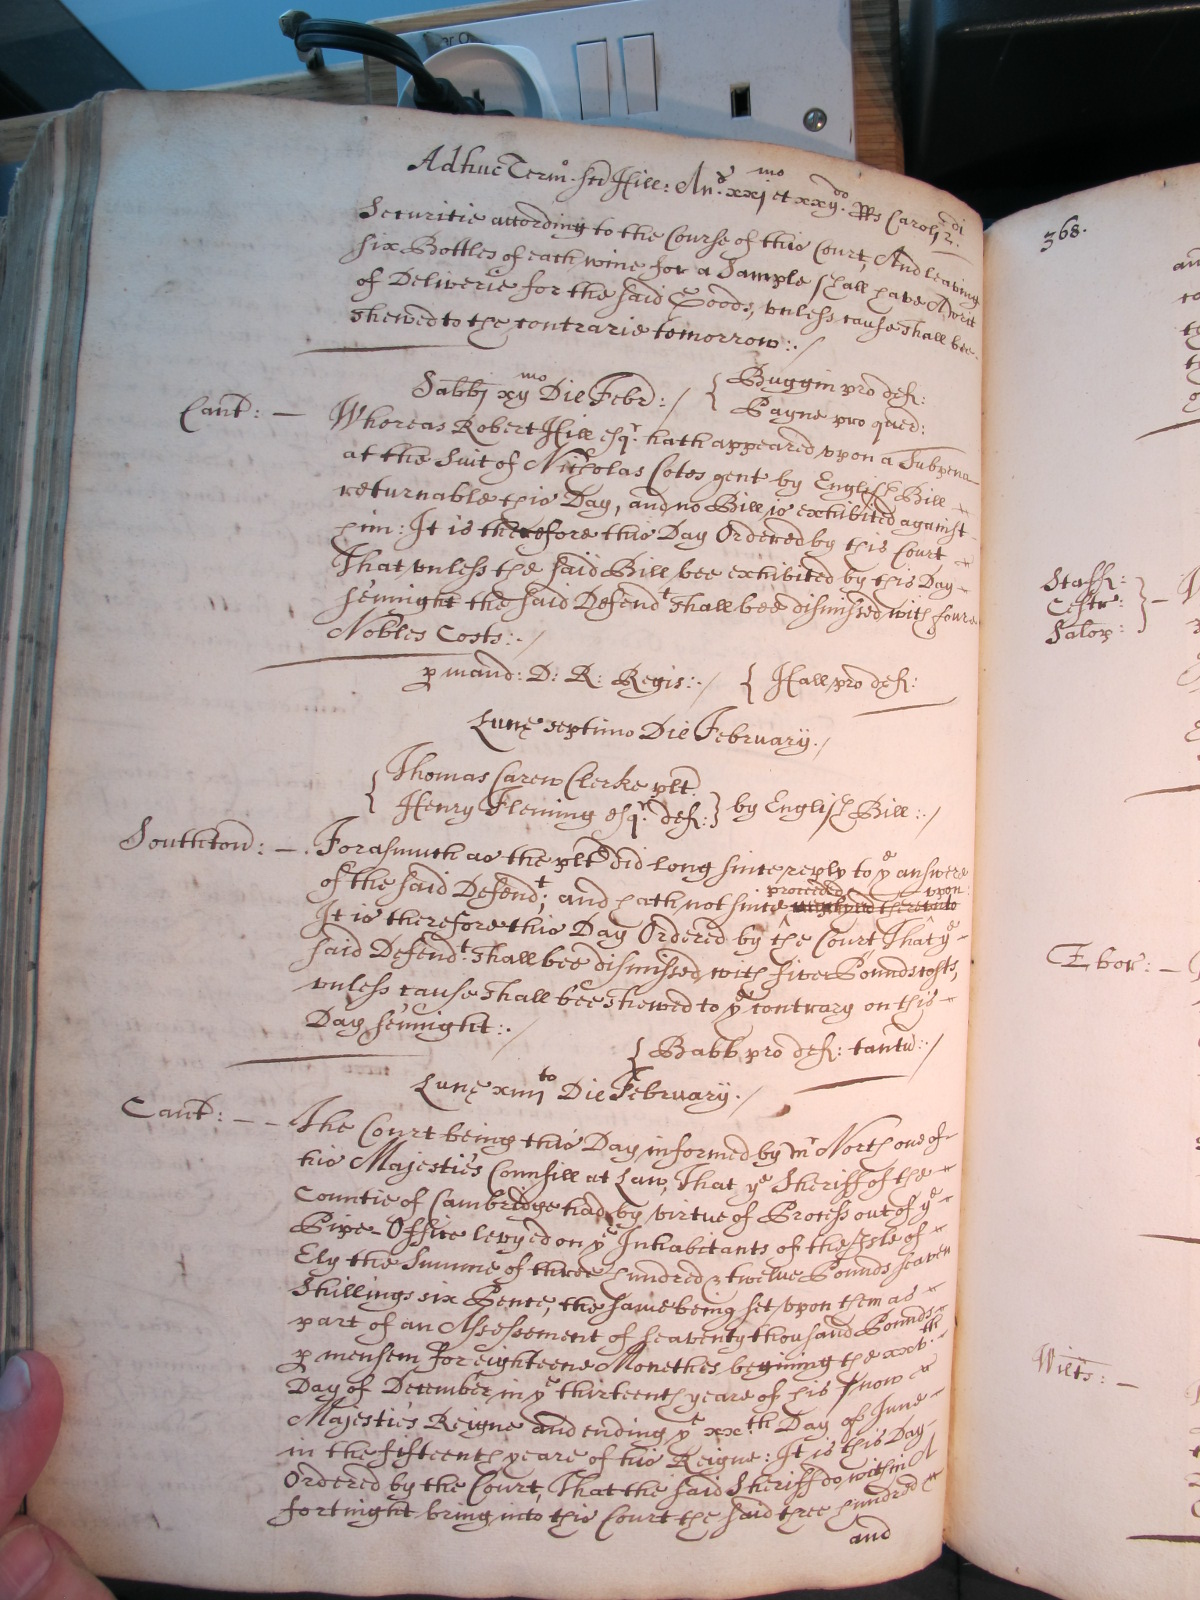 Adhuc Term. sci Hill: An.o xxj mo et xxij do. RRs Caroli 2 di.
Securitie according to the Course of this Court, And leaving
six Bottles of each wine for a Sample shall have A writ
of Deliverie for the said Goods, unless cause shall bee
shewed to the contrarie tomorrow:./
Sabbi xij mo Die Febr:./ { Buggin pro def:
Payne pro quer:
Cant: — Whereas Robert Hill esqr. hath appeared vpon a Subpena
at the Suit of Nicholas Cotes gent by English Bill
returnable this Day, and no Bill is exhibited against
him: It is therefore this Day Ordered by this Court
That vnless the said Bill bee exhibited by this Day
sennight the said Defendt shall bee dismissed with foure
Nobles Costs:./
p mand: D: R: Regis:./ { Hall pro def:
Lune septimo Die February./
{ Thomas Carew Clerke plt
Henry Fleming esqr. def: } by English Bill:./
Southton: —. Forasmuch as the plt did long since reply to ye answere
of the said Defendt; and hath not since proceeded vpon:
It is therefore this Day Ordered by the Court That ye
said Defendt shall bee dismissed with five Pounds costs,
vnless cause shall bee shewed to ye contrary on this
Day sennight:./
{ Babb pro def: tantu:./
Lune xiiij to Die February./
Cant: — — The Court being this Day informed by Mr North one of
his Majesties Counsill at Law, That ye Sheriff of the
Countie of Cambridge had by virtue of Process out of ye
Pipe-Office levyed on ye Inhabitants of the Isle of
Ely the Summe of three hundred & twelve Pounds seaven
Shillings six Pence, the same being set vpon them as
part of an Assessement of seaventy thousand Pounds
p mensem for eighteene Monethes begining the xxvth
Day of December in ye thirteenth yeare of his now
Majesties Reigne and ending ye xxth Day of June
in the fifteenth yeare of his Reigne: It is this Day
Ordered by the Court, That the said Sheriff do within A
fortnight bring into this Court the said three hundred
and
368.
Staff:
Cestr:
Salop: } —
Ebor: —
Wilts: —